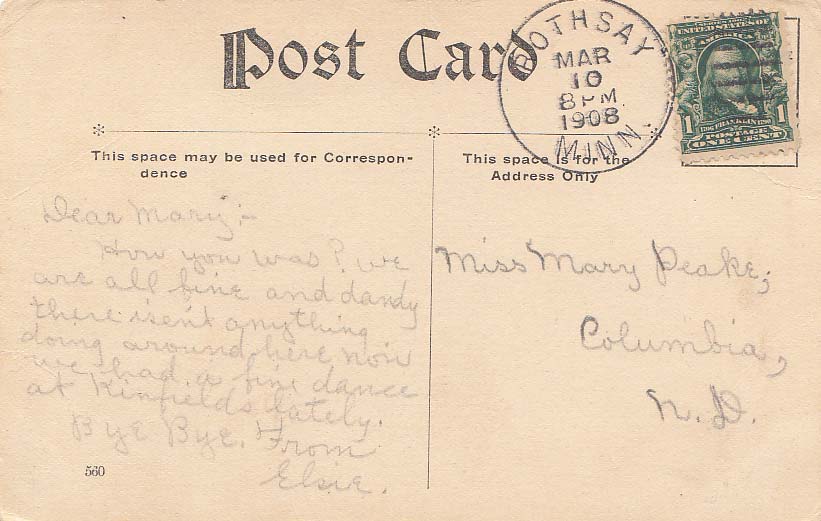 Post Card
ROTHSAY
MAR
10
8 PM
1908
MINN.
UNITED STATES OF
AMERICA
1 1
FRANKLIN
POSTAGE
ONE CENT
This space may be used for Correspon-
dence
This space is for the
Address Only
Dear Mary:-
How you was? we
are all fine and dandy
there isent anything
doing around here now
we had a fine dance
at Kinfields lately.
Bye Bye. From
Elsie.
Miss Mary Peake;
Columbia,
N.D.
560